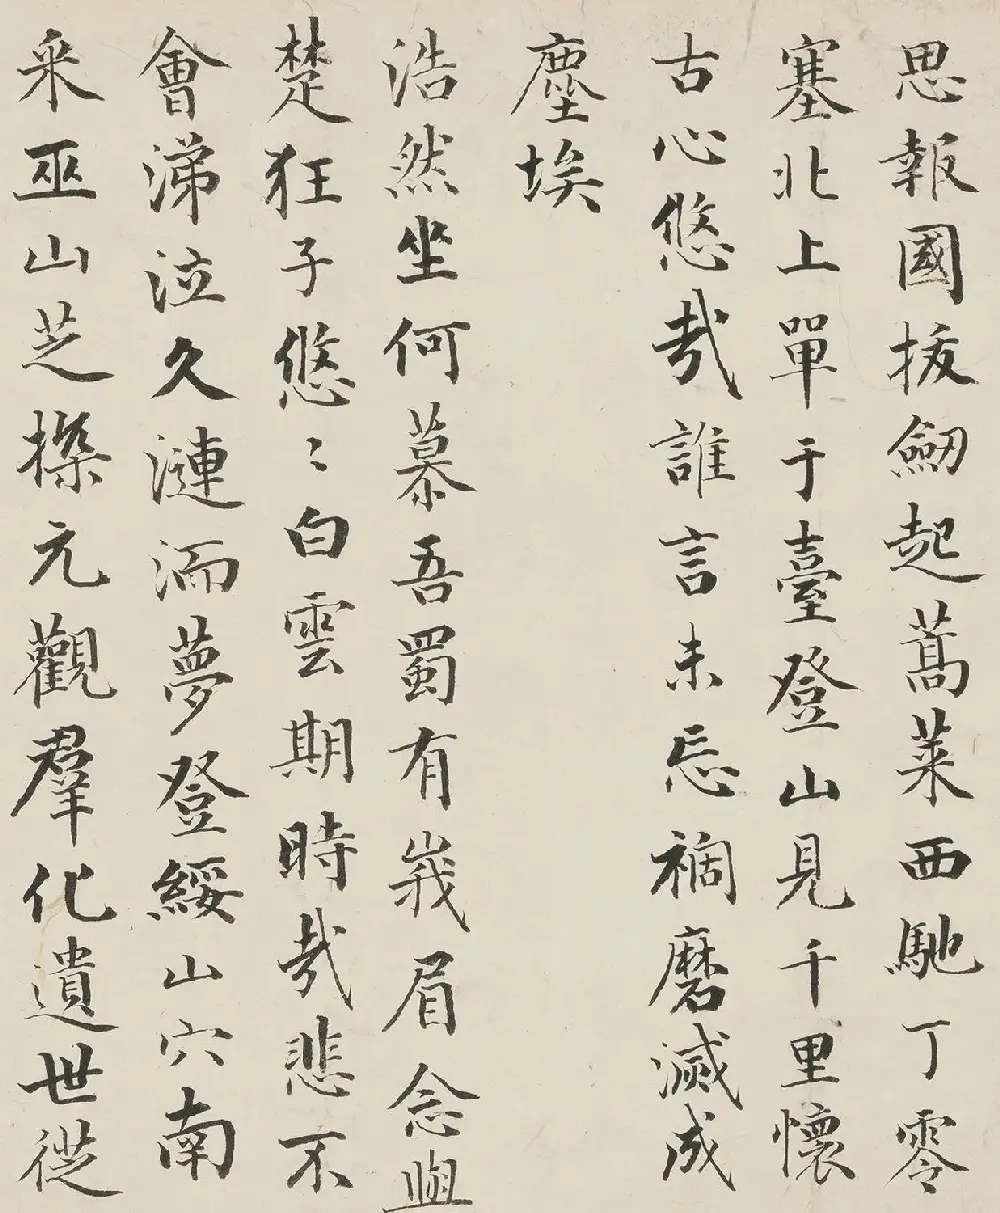 思報國拔劒起蒿萊西馳丁零
塞北上單于臺登山見千里懷
古心悠哉誰言未忘禍磨滅成
塵埃
浩然坐何慕吾蜀有峩眉念與
楚狂子悠〻白雲期時哉悲不
會涕泣久漣洏夢登綏山穴南
采巫山芝探元觀羣化遺世從